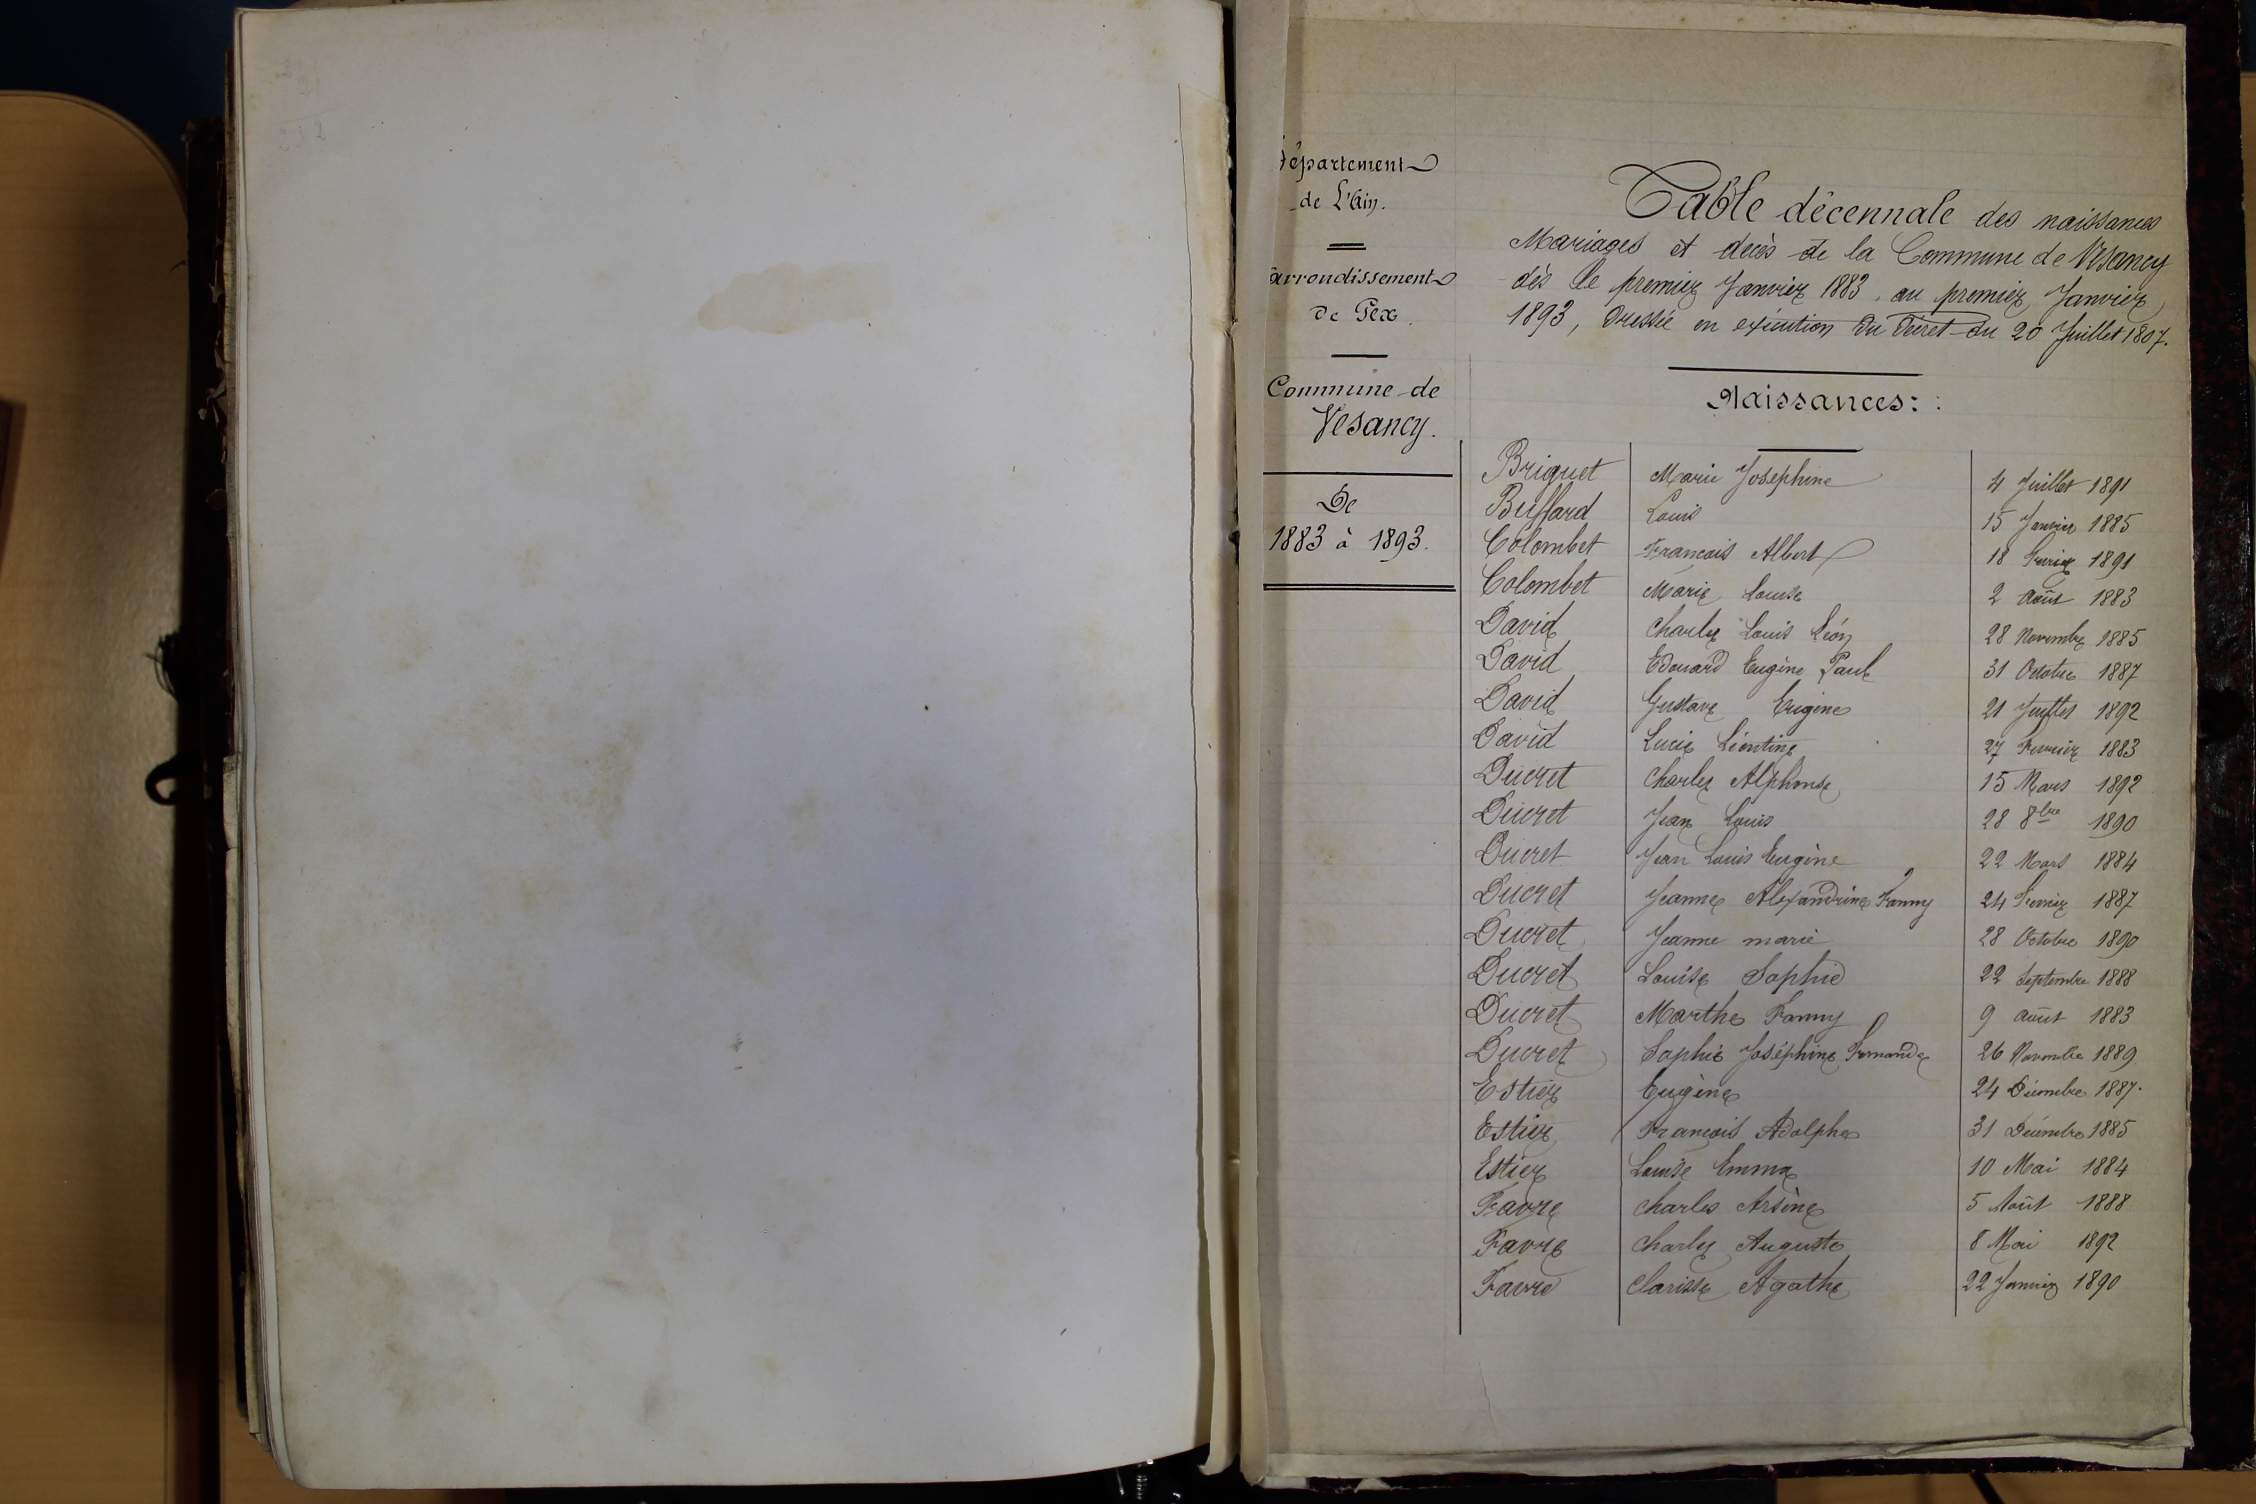 Département
de L'Ain.
arrondissement
de Gex.
Commune de
Vesancy.
De
1883 à 1893.
Table décennale des naissances
Mariages et décès de la Commune de Vesancy
dès le premier Janvier 1883 au premier Janvier
1893, dressée en exécution du décret du 20 Juillet 1807.
Naissances:
Briquet Marie Joséphine 4 Juillet 1891
Buffard Louis 15 Janvier 1885
Colombet François Albert 18 Février 1891
Colombet Marie Louise 2 Août 1883
David Charles Louis Léon 28 Novembre 1885
David Edouard Eugène Paul 31 Octobre 1887
David Gustave Eugène 21 Juillet 1892
David Lucie Léontine 27 Février 1883
Ducret Charles Alphonse 15 Mars 1892
Ducret Jean Louis 28 8bre 1890
Ducret Jean Louis Eugène 22 Mars 1884
Ducret Jeanne Alexandrine Fanny 24 Février 1887
Ducret Jeanne marie 28 Octobre 1890
Ducret Louise Sophie 22 Septembre 1888
Ducret Marthe Fanny 9 août 1883
Ducret Sophie Joséphine Fernande 26 Novembre 1889
Estier Eugène 24 Décembre 1887.
Estier François Adolphe 31 Décembre 1885
Estier Louise Emma 10 Mai 1884
Favre Charles Arsène 5 Août 1888
Favre Charles Auguste 8 Mai 1892
Favre Clarisse Agathe 22 Janvier 1890